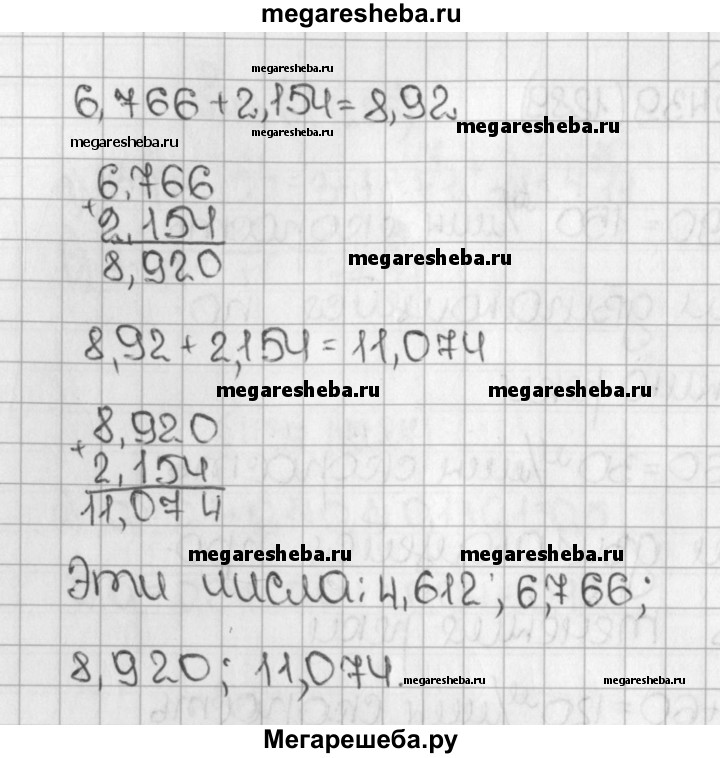 megaresheba.ru
megaresheba.ru
6,766 + 2,154 = 8,92
megaresheba.ru
megaresheba.ru
megaresheba.ru
6,766
+
2,154
8,920
megaresheba.ru
8,92 + 2,154 = 11,074
megaresheba.ru megaresheba.ru
8,920
+
2,154
11,074
megaresheba.ru megaresheba.ru
Эти числа: 4,612; 6,766;
8,920; 11,074.
megaresheba.ru megaresheba.ru
Мегарешеба.ру